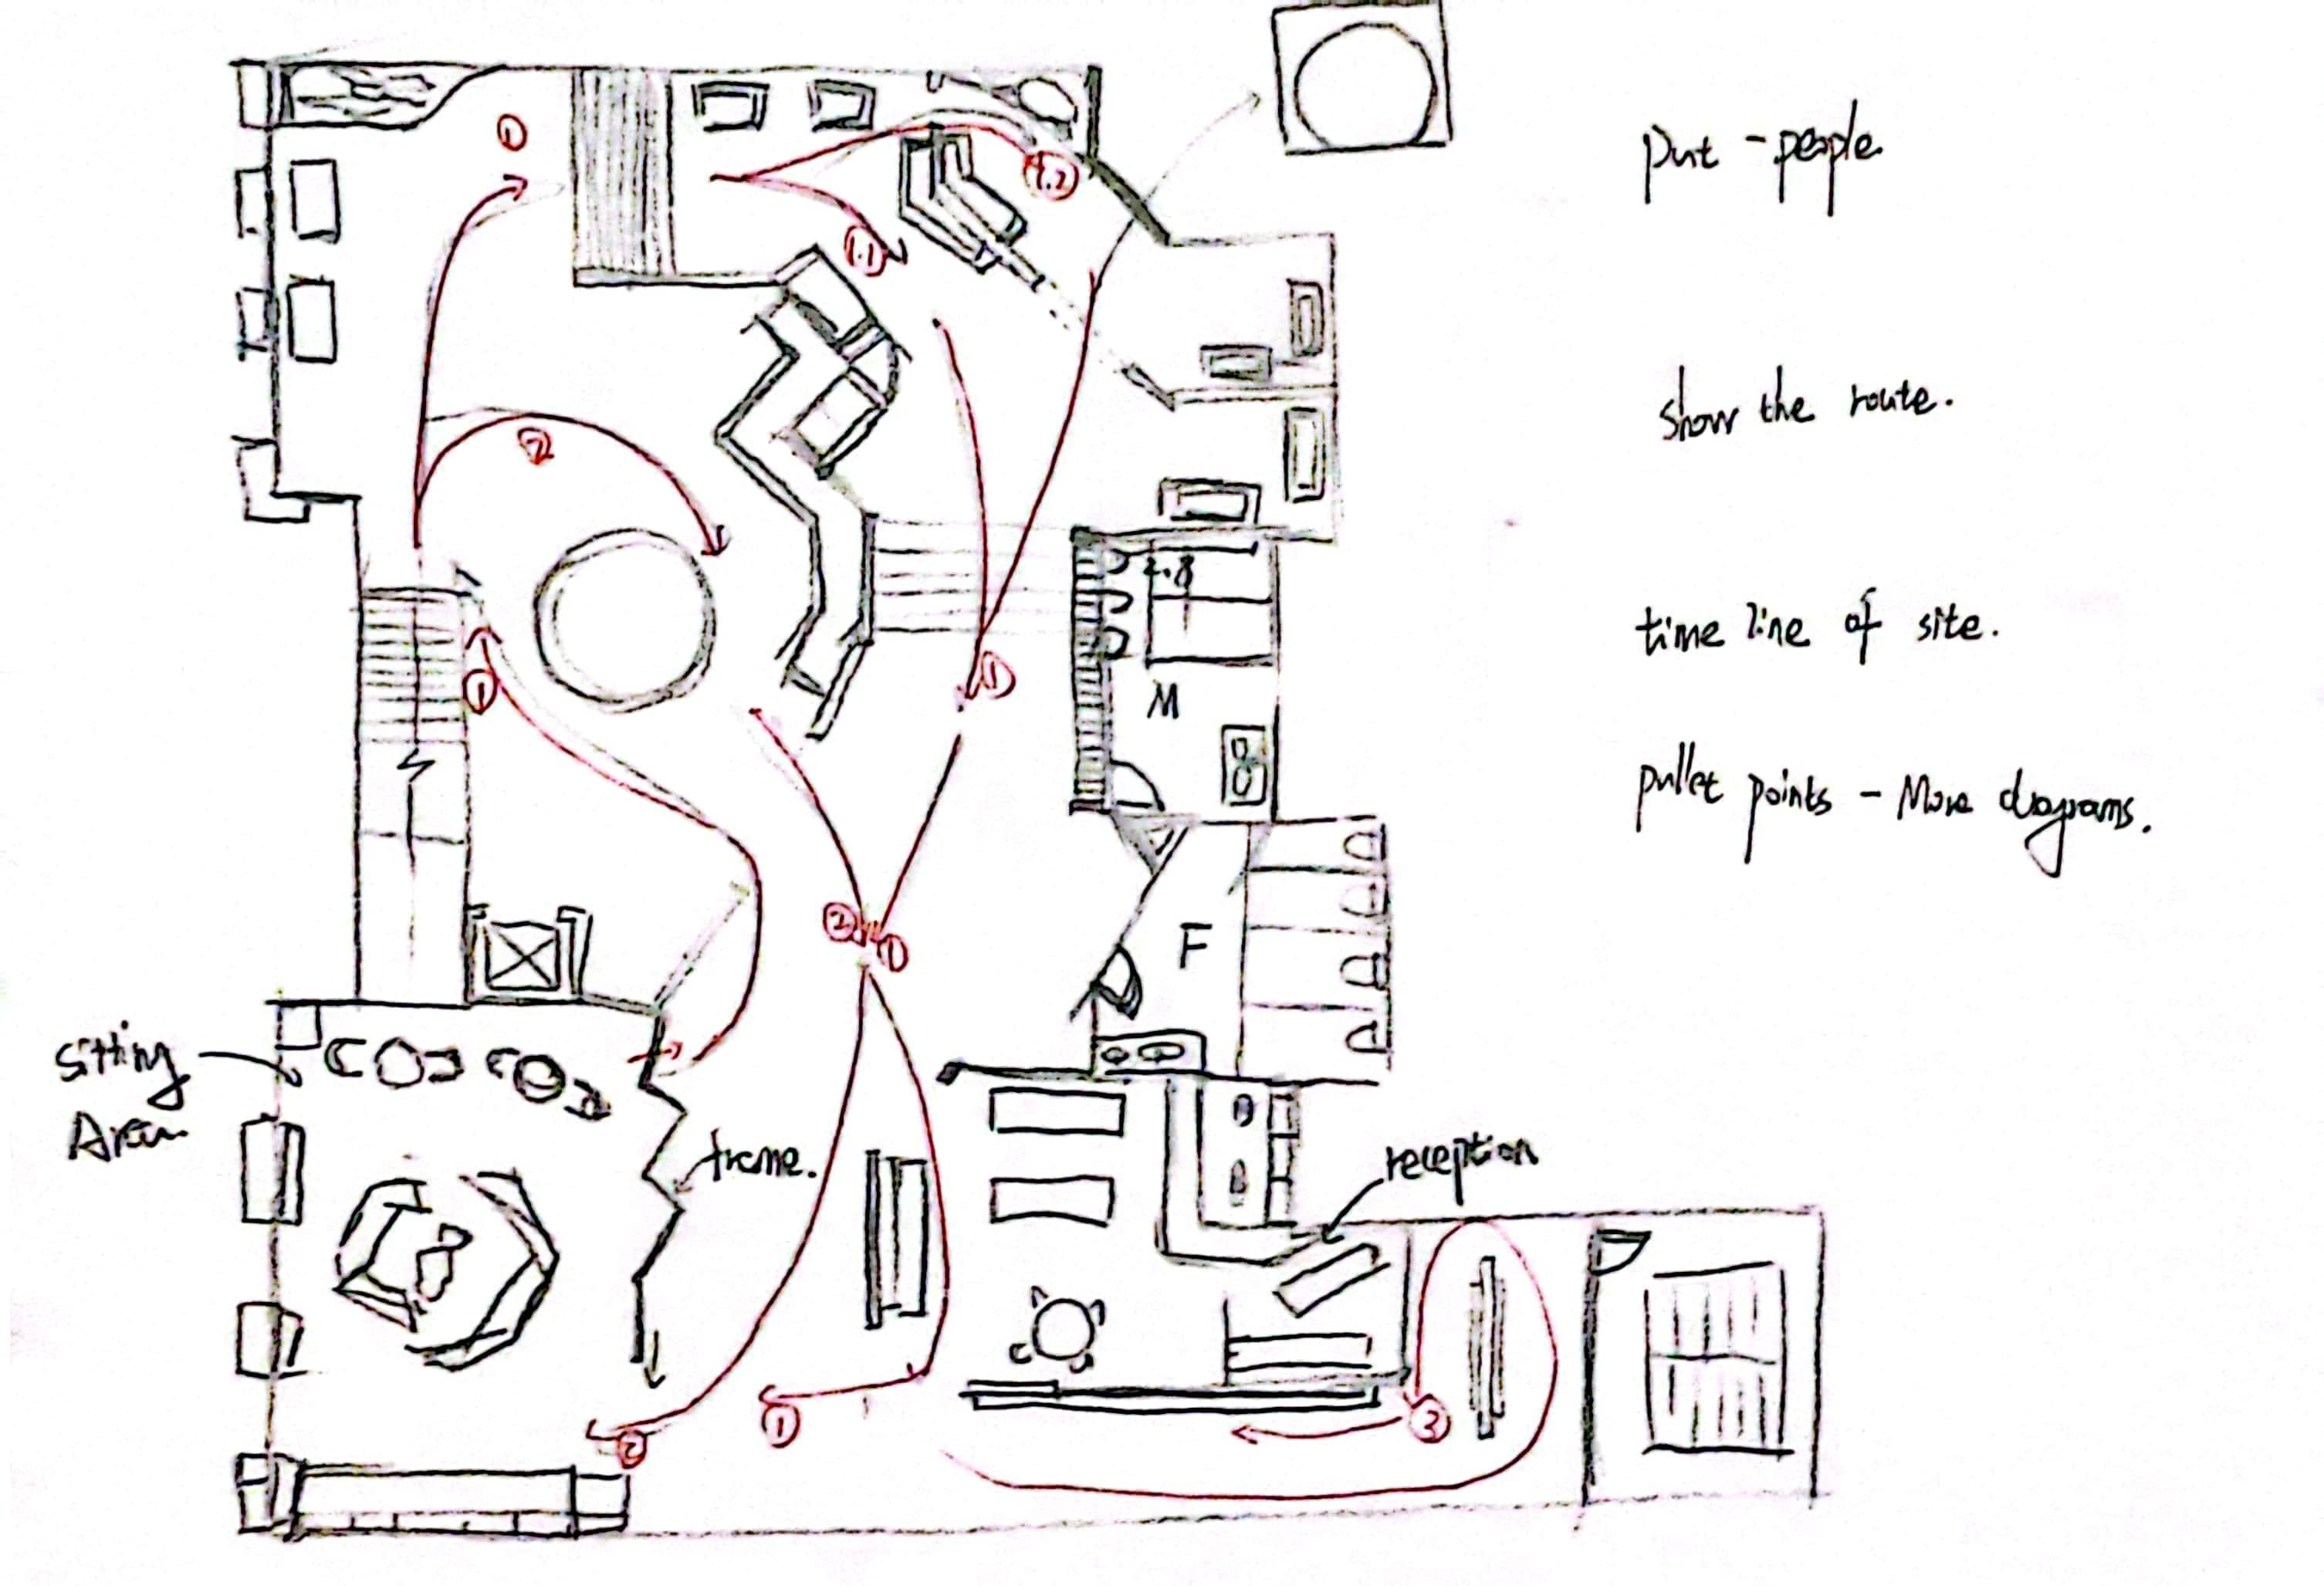 put - people
show the route.
time line of site.
pullet points - More diagrams.
1
1.2
1.1
2
2.8
1
1
M
2
1
F
Sitting
Area
frame.
reception
1
2
3